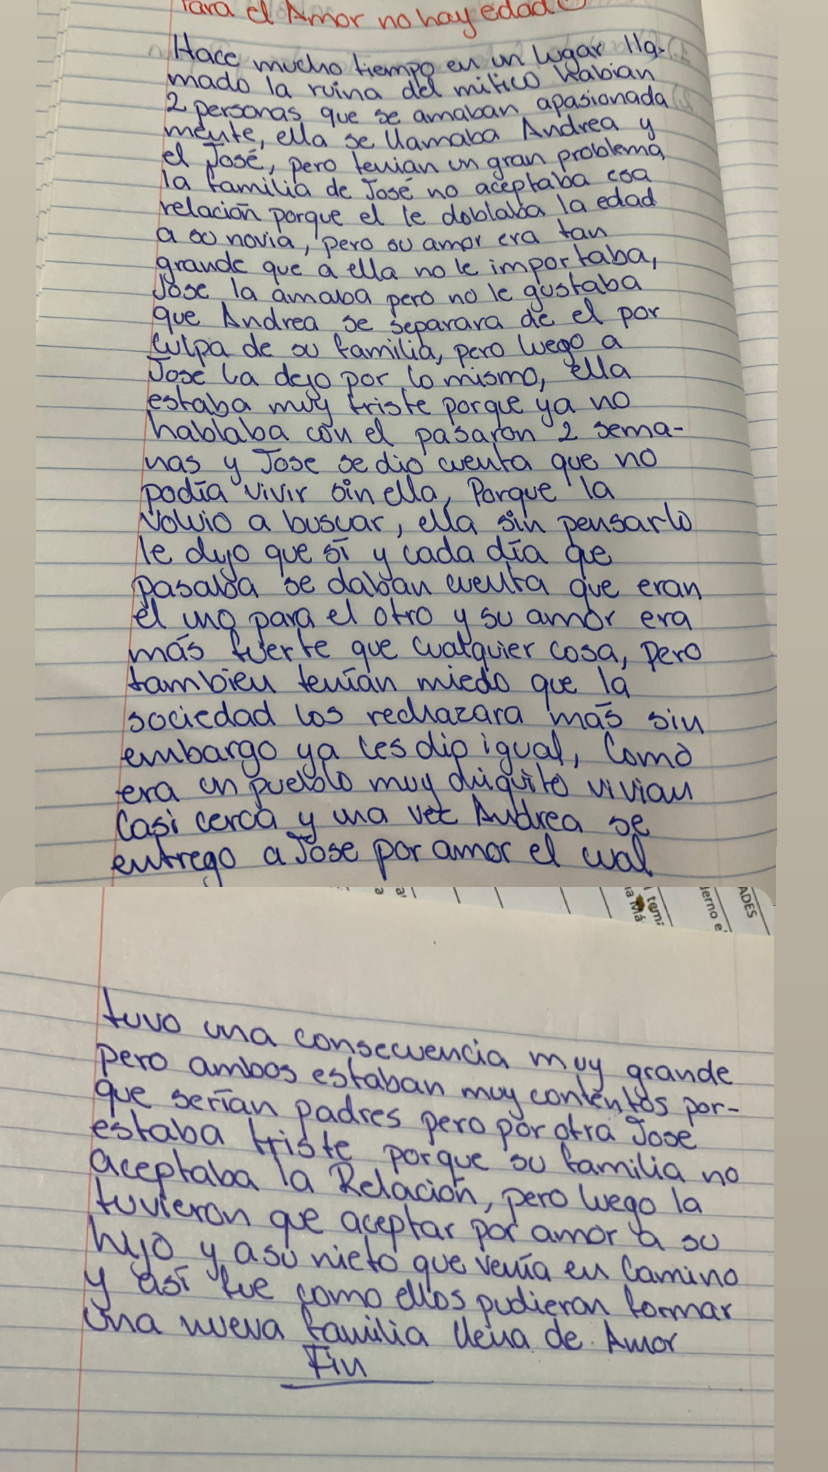 Para el Amor no hay edad
Hace mucho tiempo en un lugar lla-
mado la ruina del mítico Kabian
2 personas que se amaban apasionada
mente, ella se llamaba Andrea y
el José, pero tenian un gran problema
la familia de José no aceptaba esa
relación porque el le doblaba la edad
a su novia, pero su amor era tan
grande que a ella no le importaba,
Jose la amaba pero no le gustaba
que Andrea se separara de el por
culpa de su familia, pero luego a
Jose la dejo por lo mismo, ella
estaba muy triste porque ya no
hablaba con el pasaron 2 sema-
nas y Jose se dio cuenta que no
podía vivir sin ella, Porque la
Volvio a buscar, ella sin pensarlo
le dijo que sí y cada día que
pasaba se daban cuenta que eran
el uno para el otro y su amor era
más fuerte que cualquier cosa, pero
tambien tenían miedo que la
sociedad los rechazara más sin
embargo ya les dio igual, Como
era un pueblo muy chiquito vivian
Casi cerca y una vez Andrea se
entrego a Jose por amor el cual
tuvo una consecuencia muy grande
pero ambos estaban muy contentos por-
que serían padres pero por otra Jose
estaba triste porque su familia no
aceptaba la Relación, pero luego la
tuvieron que aceptar por amor a su
hijo y a su nieto que venía en Camino
y así fue como ellos pudieron formar
una nueva familia llena de Amor
Fin
ADES
erno e
tem
la Má